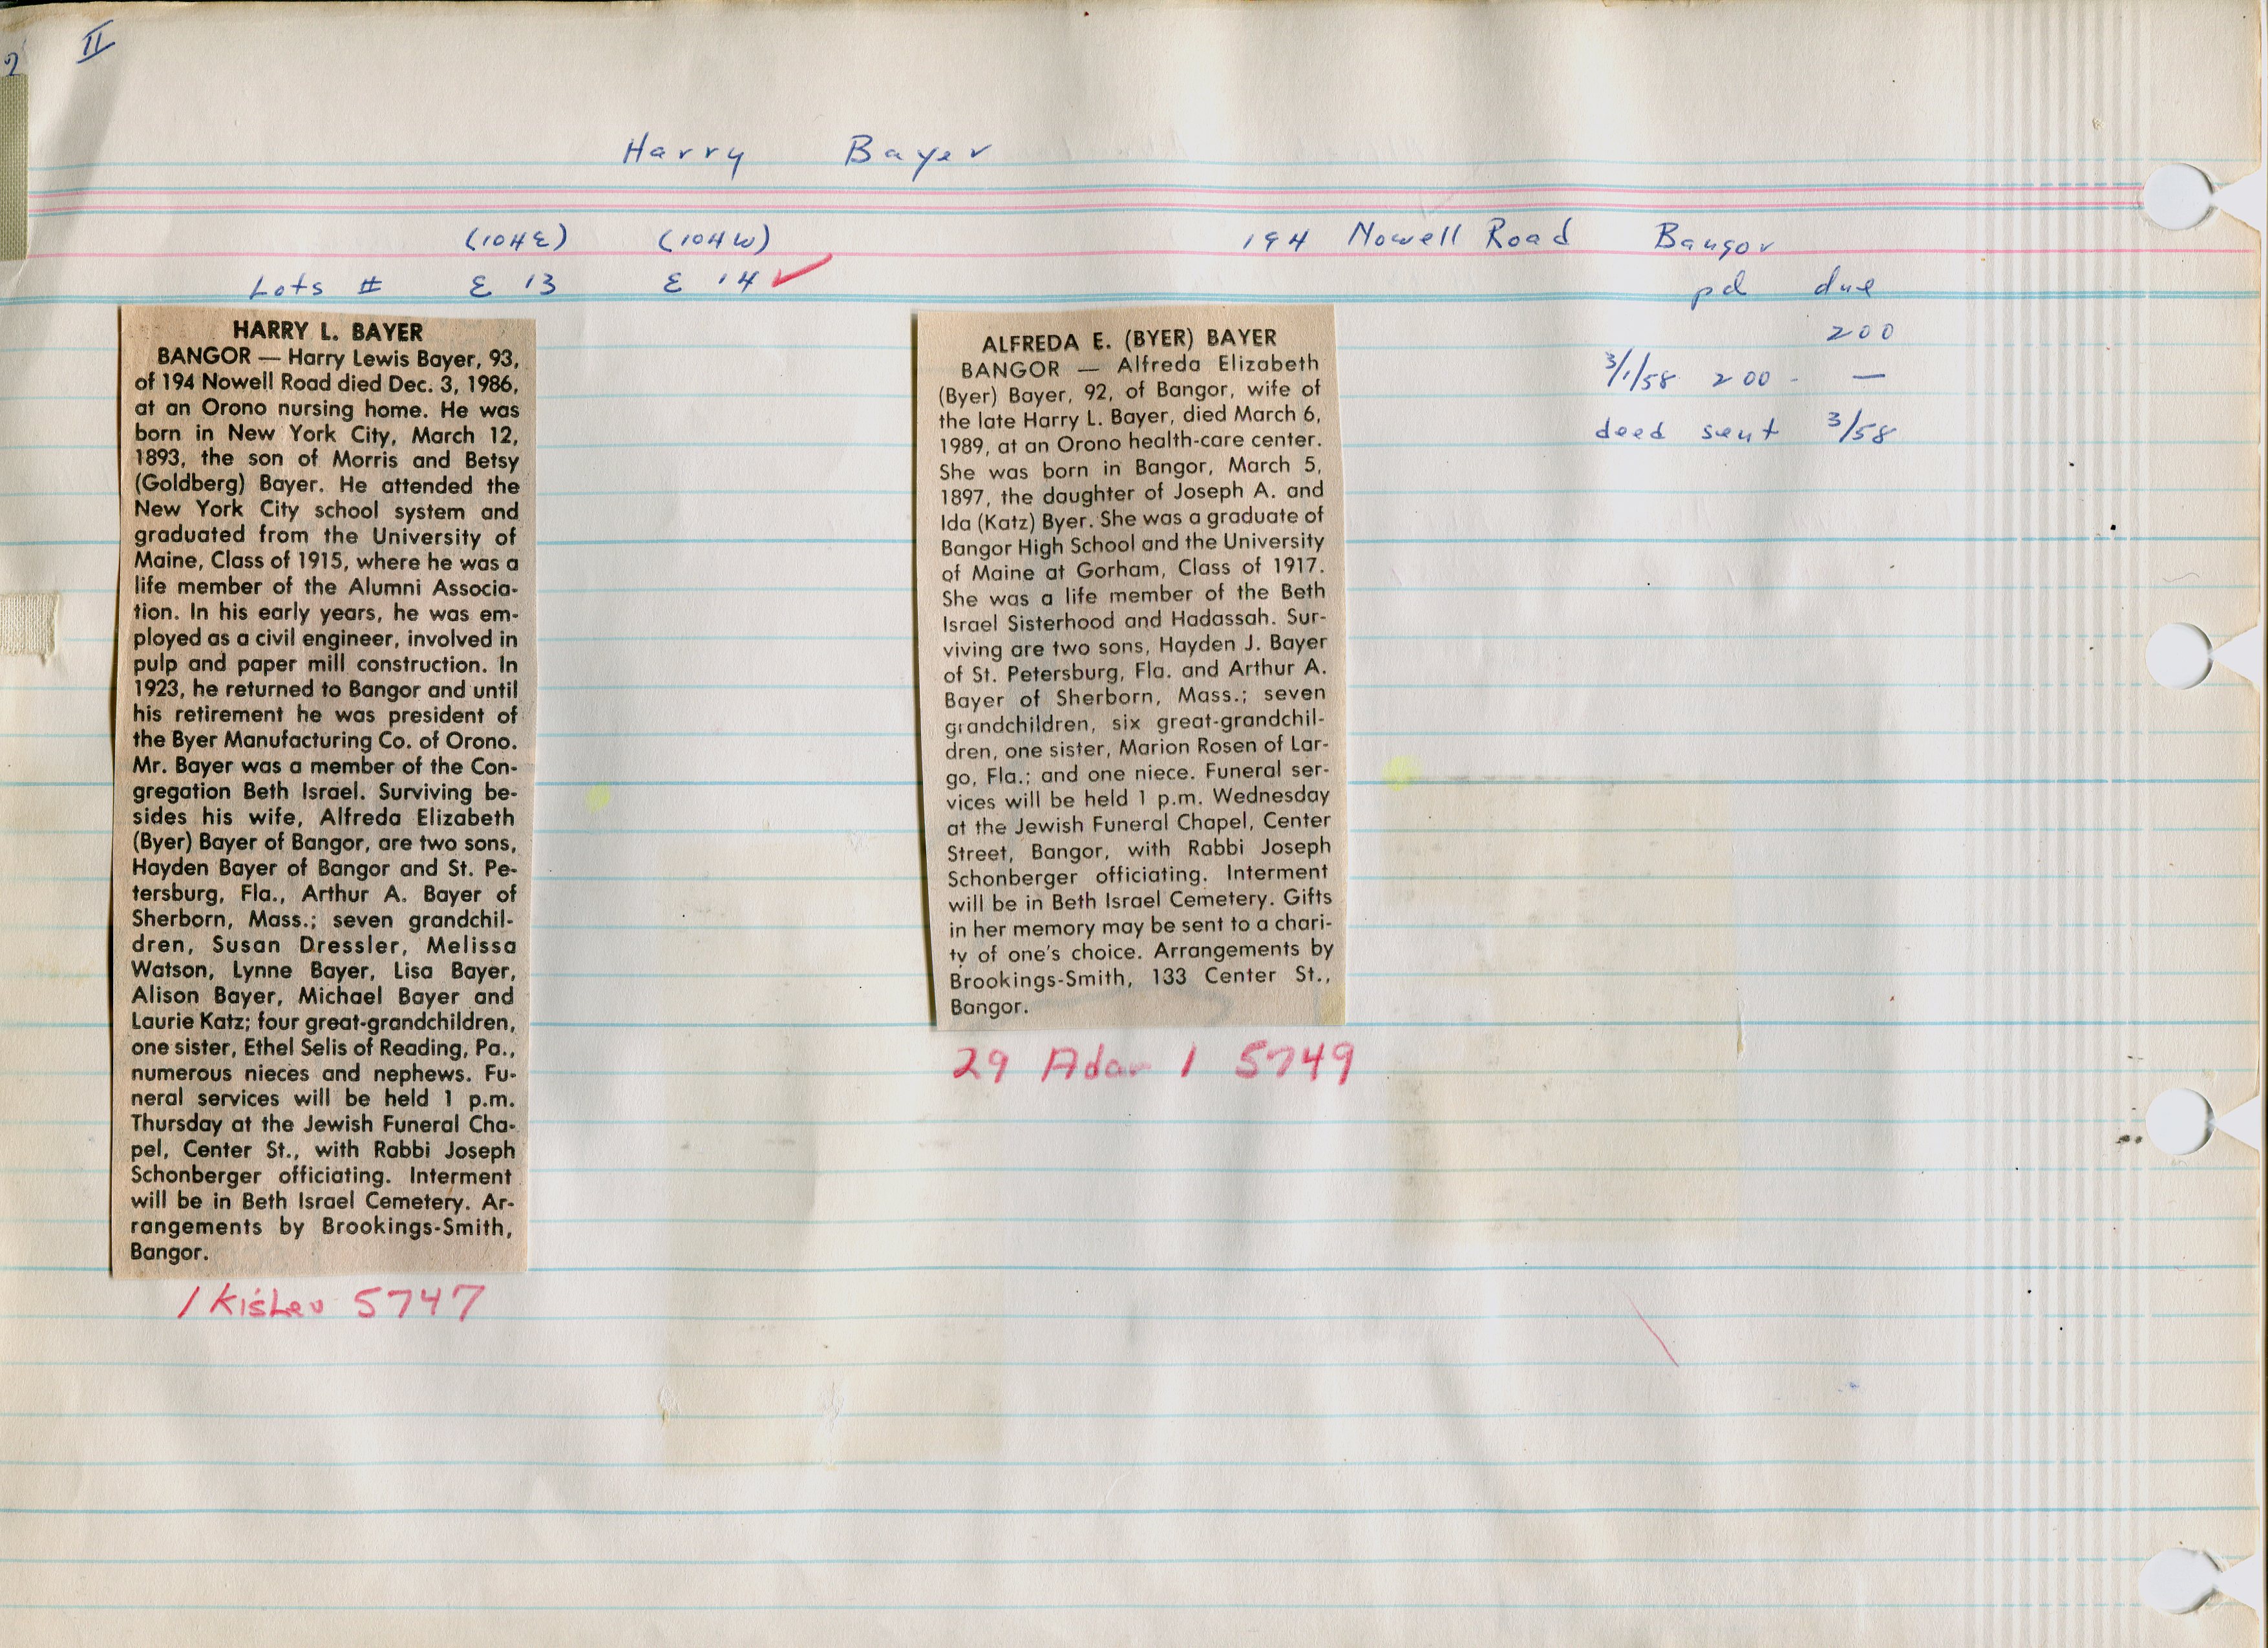 2
II
Harry Bayer
(104E) (104W) 194 Nowell Road Bangor
Lots # E 13 E 14 ✓ pd due
200
3/1/58 200 - —
deed sent 3/58
HARRY L. BAYER
BANGOR — Harry Lewis Bayer, 93,
of 194 Nowell Road died Dec. 3, 1986,
at an Orono nursing home. He was
born in New York City, March 12,
1893, the son of Morris and Betsy
(Goldberg) Bayer. He attended the
New York City school system and
graduated from the University of
Maine, Class of 1915, where he was a
life member of the Alumni Associa-
tion. In his early years, he was em-
ployed as a civil engineer, involved in
pulp and paper mill construction. In
1923, he returned to Bangor and until
his retirement he was president of
the Byer Manufacturing Co. of Orono.
Mr. Bayer was a member of the Con-
gregation Beth Israel. Surviving be-
sides his wife, Alfreda Elizabeth
(Byer) Bayer of Bangor, are two sons,
Hayden Bayer of Bangor and St. Pe-
tersburg, Fla., Arthur A. Bayer of
Sherborn, Mass.; seven grandchil-
dren, Susan Dressler, Melissa
Watson, Lynne Bayer, Lisa Bayer,
Alison Bayer, Michael Bayer and
Laurie Katz; four great-grandchildren,
one sister, Ethel Selis of Reading, Pa.,
numerous nieces and nephews. Fu-
neral services will be held 1 p.m.
Thursday at the Jewish Funeral Cha-
pel, Center St., with Rabbi Joseph
Schonberger officiating. Interment
will be in Beth Israel Cemetery. Ar-
rangements by Brookings-Smith,
Bangor.
1 Kislev 5747
ALFREDA E. (BYER) BAYER
BANGOR — Alfreda Elizabeth
(Byer) Bayer, 92, of Bangor, wife of
the late Harry L. Bayer, died March 6,
1989, at an Orono health-care center.
She was born in Bangor, March 5,
1897, the daughter of Joseph A. and
Ida (Katz) Byer. She was a graduate of
Bangor High School and the University
of Maine at Gorham, Class of 1917.
She was a life member of the Beth
Israel Sisterhood and Hadassah. Sur-
viving are two sons, Hayden J. Bayer
of St. Petersburg, Fla. and Arthur A.
Bayer of Sherborn, Mass.; seven
grandchildren, six great-grandchil-
dren, one sister, Marion Rosen of Lar-
go, Fla.; and one niece. Funeral ser-
vices will be held 1 p.m. Wednesday
at the Jewish Funeral Chapel, Center
Street, Bangor, with Rabbi Joseph
Schonberger officiating. Interment
will be in Beth Israel Cemetery. Gifts
in her memory may be sent to a chari-
ty of one's choice. Arrangements by
Brookings-Smith, 133 Center St.,
Bangor.
29 Adar 1 5749